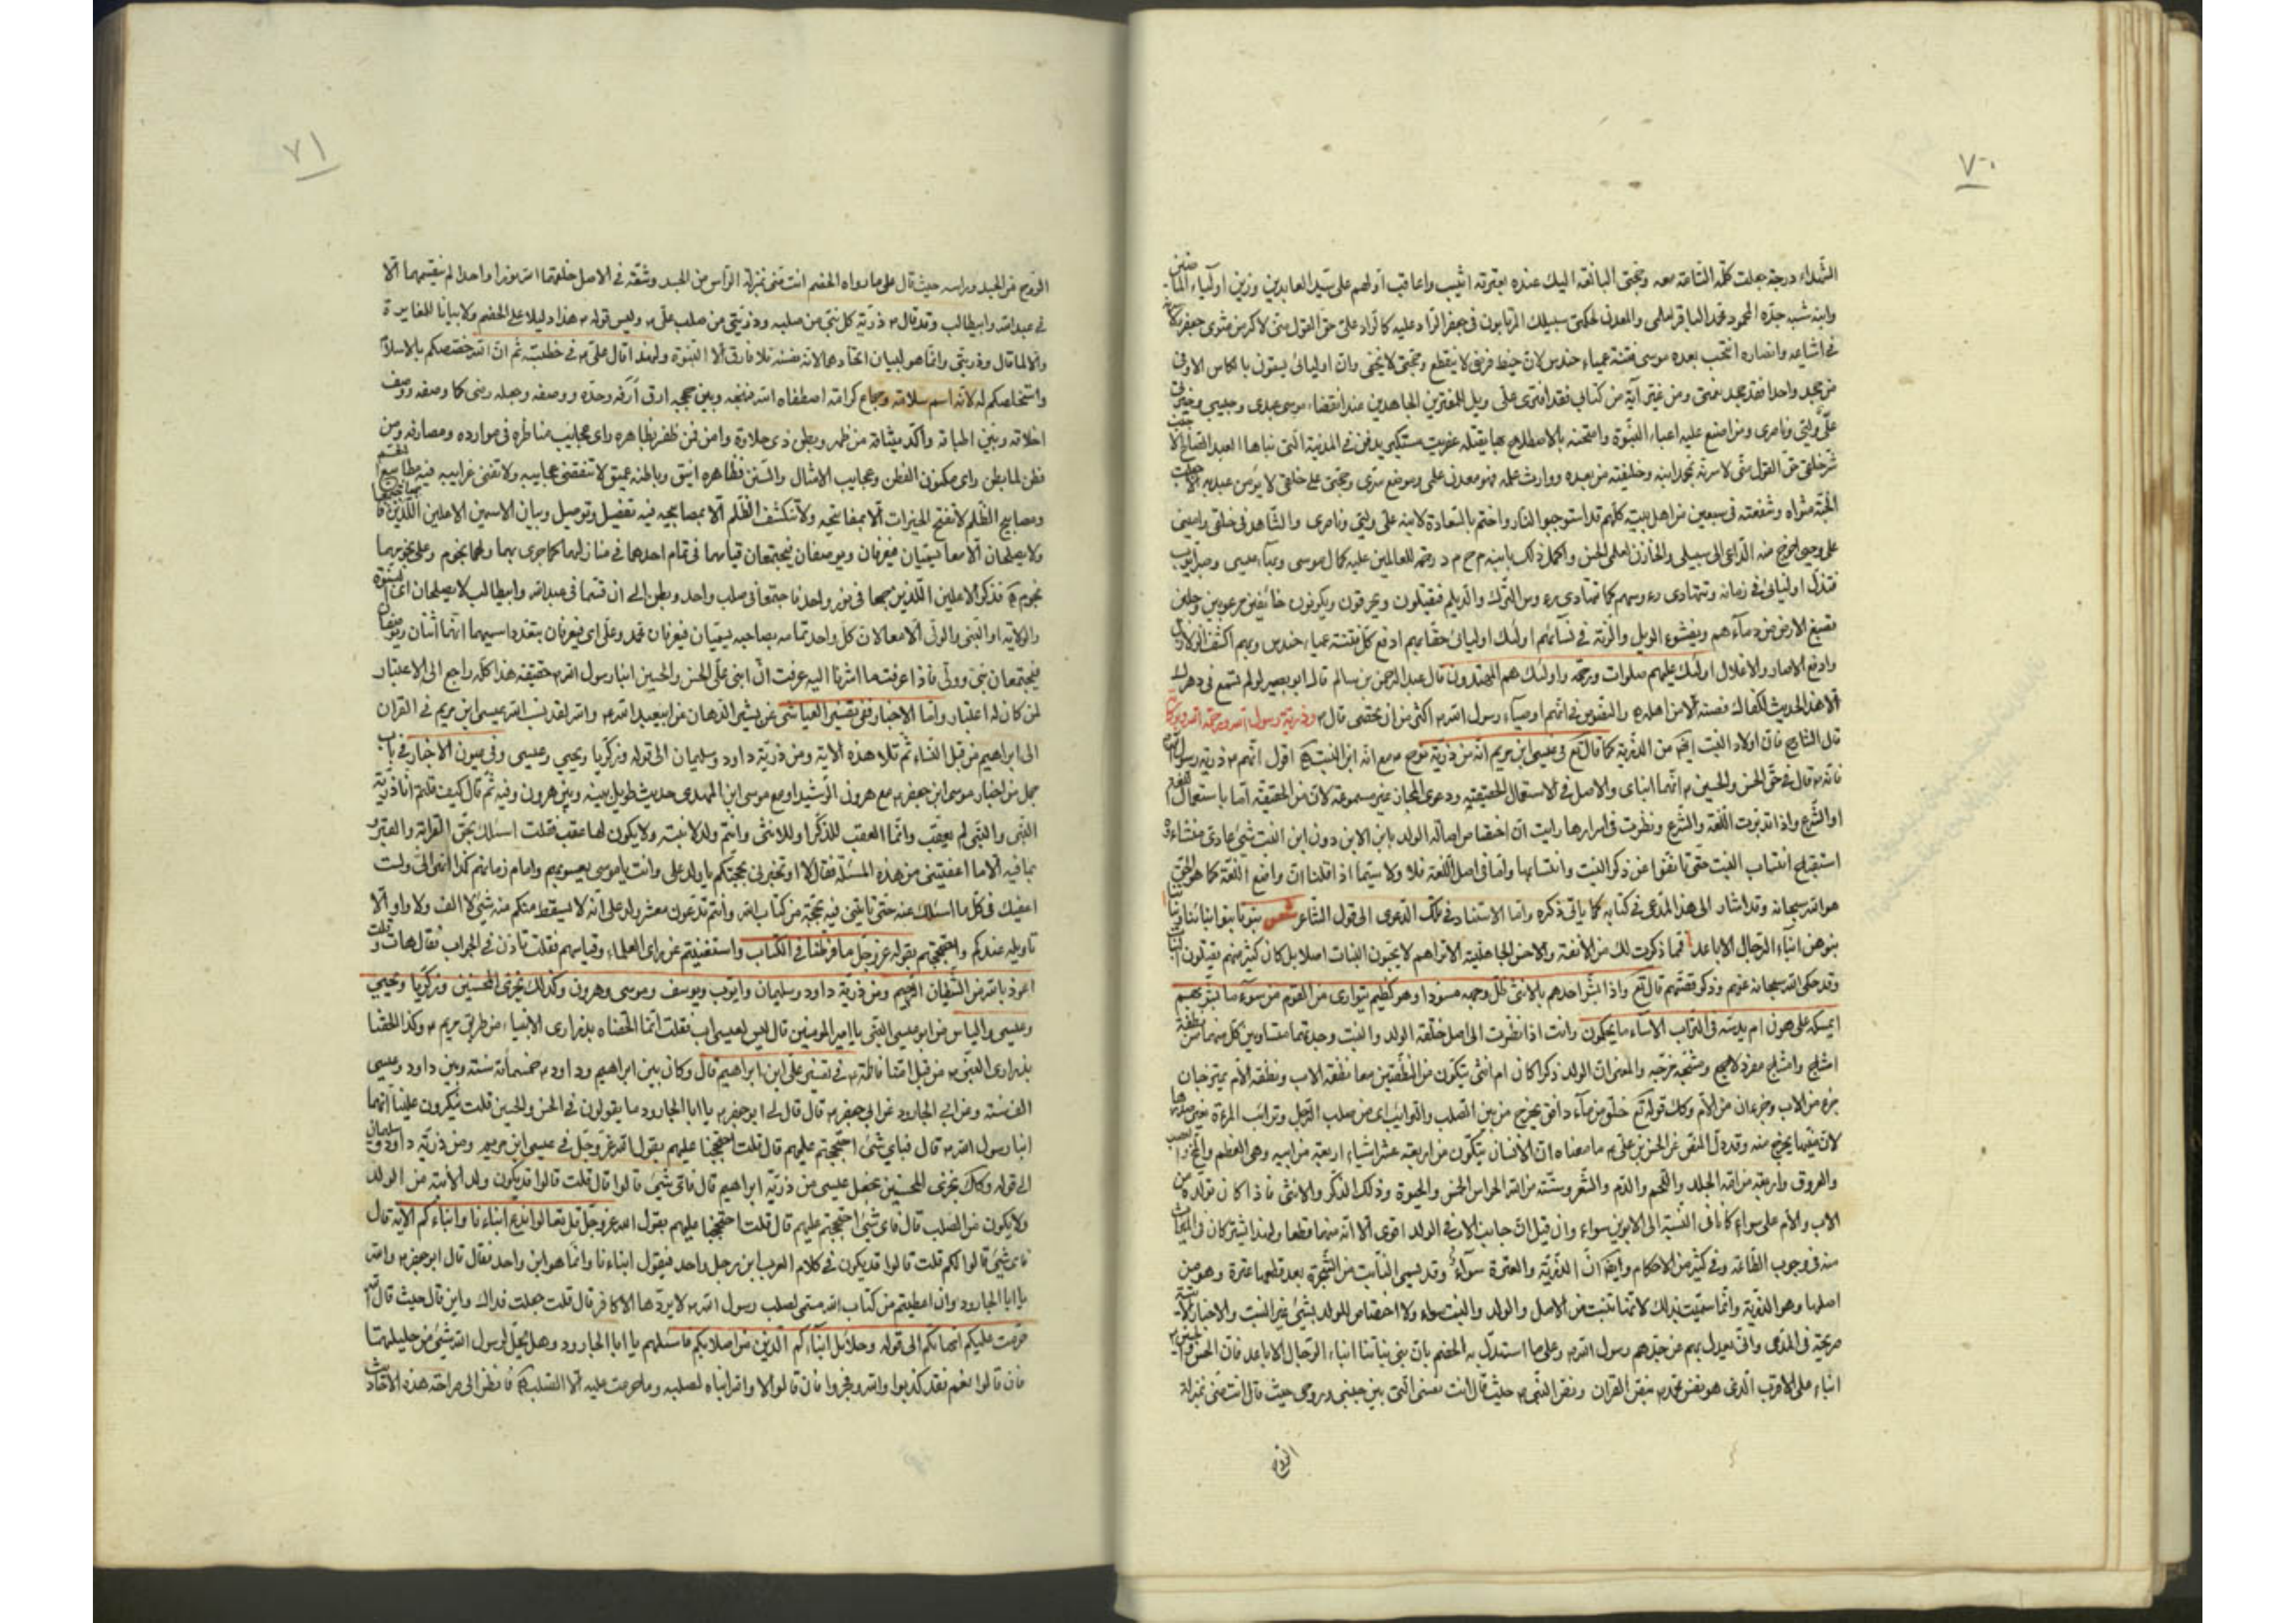 ٧٠
الشهداء درجة جعلت كلمتى التامة معه وحجتى البالغة اليك عنده بعترته اثيب واعاقب اولهم على سيد العابدين وزين اوليآء الماضين
وابنه شبه جده المحمود محمد الباقر لعلمى والمعدن لحكمتى سيهلك المرتابون فى جعفر الراد عليه كالراد على حق القول منى لاكرمن مثوى جعفر ولاسرنه
فى اشياعه وانصاره انتجب بعده موسى فتنة عمياء حندس لان خيط فرضى لا ينقطع وحجتى لا تخفى وان اوليائى يسقون بالكاس الاوفى
من جحد واحدا فقد جحد نعمتى ومن غير آية من كتابى فقد افترى على ويل للمفترين الجاحدين عند انقضاء موسى عبدى وحبيبى وخيرتى
على وليى وناصرى ومن اضع عليه اعباء النبوة وامتحنه بالاضطلاع بها يقتله عفريت مستكبر يدفن فى المدينة التى بناها العبد الصالح الى جنب
شر خلقى حق القول منى لاسرنه بمحمد ابنه وخليفته من بعده ووارث علمه فهو معدن علمى وموضع سرى وحجتى على خلقى لا يؤمن عبد به الا جعلت
الجنة مثواه وشفعته فى سبعين من اهل بيته كلهم قد استوجبوا النار واختم بالسعادة لابنه على وليى وناصرى والشاهد فى خلقى وامينى
على وحيى اخرج منه الداعى الى سبيلى والخازن لعلمى الحسن واكمل ذلك بابنه م ح م د رحمة للعالمين عليه كمال موسى وبهآء عيسى وصبر ايوب
فتذل اوليائى فى زمانه وتتهادى رءوسهم كما تتهادى رءوس الترك والديلم فيقتلون ويحرقون ويكونون خائفين مرعوبين وجلين
تصبغ الارض من دمآءهم ويفشوء الويل والرنة فى نسائهم اولئك اوليائى حقا بهم ادفع كل فتنة عمياء حندس وبهم اكشف الزلازل
وادفع الاصار والاغلال اولئك عليهم صلوات ورحمة واولئك هم المهتدون قال عبد الرحمن بن سالم قال ابو بصير لو لم تسمع فى دهرك
الا هذا الحديث لكفاك فصنه الا من اهله والنصوص فى انهم اوصيآء رسول الله اكثر من ان تحصى قال وذرية رسول الله ورحمة الله وبركاته
قال الشارح فان اولاد البنت ايضا من الذرية كما قال تع فى عيسى ابن مريم انه من ذرية نوح مع انه ابن البنت اقول انهم من ذرية رسول الله
فانه قال فى حق الحسن والحسين انهما ابناى والاصل فى الاستعمال الحقيقة ودعوى المجاز غير مسموعة لان من الحقيقة اما باستعمال اللغة
او الشرع واذا تدبرت اللغة والشرع ونظرت فى اسرارها رايت ان اختصاص اصالة الولد بابن الابن دون ابن البنت شئ عادى منشاءه
استقباح انتساب البنت حتى تانفوا عن ذكر البنت وانتسابها واما فى اصل اللغة فلا ولا سيما اذا قلنا ان واضع اللغة كما هو الحق
هو الله سبحانه وقد اشار الى هذا المدعى فى كتابه كما ياتى ذكره واما الاستناد فى تلك الدعوى الى قول الشاعر شعر بنونا بنوا ابنائنا وبناتنا
بنوهن ابناء الرجال الاباعد فمما ذكرت لك من الانفة والاحن الجاهلية الا تراهم لا يحبون البنات اصلا بل كان كثير منهم يقتلون البنات
وقد حكى الله سبحانه عنهم وذكر قصتهم قال تع واذا بشر احدهم بالانثى ظل وجهه مسودا وهو كظيم يتوارى من القوم من سوء ما بشر به
ايمسكه على هون ام يدسه فى التراب الا ساء ما يحكمون وانت اذا نظرت الى اصل خلقة الولد والبنت وجدتهما متساويين كل منهما من نطفة
امشاج وامشاج مفرد لا جمع ومشجة مزجه والمعنى ان الولد ذكرا كان ام انثى يتكون من النطفتين معا نطفة الاب ونطفة الام يمتزجان
جزء من الاب وجزءان من الام وكذلك قوله تع خلق من مآء دافق يخرج من بين الصلب والترائب اى من صلب الرجل وترائب المرءة
لان منيهما يخرج منه وقد دل النص عن الحسن بن على ما معناه ان الانسان يتكون من اربعة عشر اشياء اربعة من ابيه وهى العظم والمخ والعصب
والعروق واربعة من امه الجلد واللحم والدم والشعر وستة من الله الحواس الخمس والحيوة وذلك الذكر والانثى فاذا كان تولده من
الاب والام على سواء كانا فى النسبة الى الابوين سواء وان قيل ان جانب الاب فى الولد اقوى الا انه منهما قطعا ولهذا اشتركا فى الميراث
منه فى وجوب الطاعة وفى كثير من الاحكام وايضا ان الذرية والعترة سوآء وقد يسمى النابت من الشجرة بعد قطعها عترة وهو من
اصلها وهو الذرية وانما سميت بذلك لانها تنبت من الاصل والولد والبنت سواء ولا اختصاص للولد بشئ غير البنت والاخبار
صريحة فى المدعى وانى يعدل بهم عن جدهم رسول الله وعلى ما استدل به الخصم بان بنى بناتنا ابناء الرجال الاباعد فان الحسن والحسين
ابناء على الاقرب الذى هو نفس محمد بنص القران ونص النبى حيث قال انت نفسى التى بين جنبى وروحى حيث قال انت منى بمنزلة
الروح
٧١
الروح من الجسد وراسه حيث قال على ما رواه الخصم انت منى بمنزلة الرأس من الجسد وشقه فى الاصل خلقهما الله نورا واحدا لم يقسمهما الا
فى عبد الله وابيطالب وقد قال ذرية كل نبى من صلبه وذريتى من صلب على وليس قوله هذا دليلا على الخصم ولا بيانا للمغايرة
والا لما قال وذريتى وانما هو لبيان اتحادهما لانه نفسه فلا فارق الا النبوة ولهذا قال على فى خطبته ثم ان الله خصصكم بالاسلام
واستخلصكم له لانه اسم سلامة وجماع كرامة اصطفاه الله فنهجه وبين حججه ارف ارفه وحده ووصفه وجعله رضى كما وصفه ووصف
اخلاقه وبين اطباقه واكد ميثاقه من ظهر وبطن ذى حلاوة وامن فمن ظفر بظاهره راى عجايب مناظره فى موارده ومصادره ومن
فطن لما بطن راى مكنون الفطن وعجايب الامثال والسنن فظاهره انيق وباطنه عميق لا تنقضى عجايبه ولا تفنى غرايبه فيه
ومصابيح الظلم لا تفتح الخيرات الا بمفاتيحه ولا تنكشف الظلم الا بمصابيحه فيه تفصيل وتوصيل وبيان الاسمين الاعلين اللذين
ولا يصلحان الا معا يسميان فيعرفان ويوصفان فيجتمعان قيامهما فى تمام احدهما فى منازلهما كما جرى بهما ولهما نجوم وعلى نجومهما
نجوم فذكر الاعلين اللذين جمعا فى نور واحد فاجتمعا فى صلب واحد وبطن الى ان قسما فى عبد الله وابيطالب لا يصلحان اى النبوة
والولاية او النبى والولى الا معا لان كل واحد تمامه بصاحبه يسميان فيعرفان محمد وعلى اى فيعرفان بتعدد اسميهما انهما اثنان ويوصفان
فيجتمعان نبى وولى فاذا عرفت ما اشرنا اليه عرفت ان ابنى على الحسن والحسين ابنا رسول الله حقيقة هذا كله راجع الى الاعتبار
لمن كان له اعتبار واما الاخبار ففى تفسير العياشى عن بشير الدهان عن ابيعبد الله والله لقد نسب الله عيسى ابن مريم فى القران
الى ابراهيم من قبل النساء ثم تلا هذه الاية ومن ذرية داود وسليمان الى قوله وزكريا ويحيى وعيسى وفى عيون الاخبار فى باب
جمل من اخبار موسى ابن جعفر مع هرون الرشيد او مع موسى ابن المهدى حديث طويل بينه وبين هرون وفيه ثم قال كيف قلتم انا ذرية
النبى والنبى لم يعقب وانما العقب للذكر لا للانثى وانتم ولد لابنته ولا يكون لها عقب فقلت اسئلك بحق القرابة والقبر
بما فيه الا ما اعفيتنى من هذه المسئلة فقال لا او تخبرنى بحجتكم يا ولد على وانت يا موسى يعسوبهم وامام زمانهم كذا انهى الى ولست
اعفيك فى كل ما اسئلك عنه حتى تاتينى فيه بحجة من كتاب الله وانتم تدعون معشر ولد على انه لا يسقط منكم منه شئ لا الف ولا واو الا
تاويله عندكم واحتججتم بقوله عز وجل ما فرطنا فى الكتاب واستغنيتم عن راى العلماء وقياسهم فقلت تاذن فى الجواب فقال هات قلت
اعوذ بالله من الشيطان الرجيم ومن ذرية داود وسليمان وايوب ويوسف وموسى وهرون وكذلك نجزى المحسنين وزكريا ويحيى
وعيسى والياس من ابو عيسى النبى يا امير المومنين قال ليس لعيسى اب فقلت انما الحقناه بذرارى الانبياء من طريق مريم وكذا الحقنا
بذرارى النبى من قبل امنا فاطمة فى تفسير على ابن ابراهيم قال وكان بين ابراهيم وداود خمسمائة سنة وبين داود وعيسى
الف سنة وعن ابى الجارود عن ابى جعفر قال قال لى ابو جعفر يا ابا الجارود ما يقولون فى الحسن والحسين قلت ينكرون علينا انهما
ابنا رسول الله قال فباى شئ احتججتم عليهم قال قلت احتججنا عليهم بقول الله عز وجل فى عيسى ابن مريم ومن ذريته داود وسليمان
الى قوله وكذلك نجزى المحسنين فجعل عيسى من ذرية ابراهيم قال فاى شئ قالوا قال قلت قالوا قد يكون ولد الابنة من الولد
ولا يكون من الصلب قال فاى شئ احتججتم عليهم قال قلت احتججنا عليهم بقول الله عز وجل قل تعالوا ندع ابناءنا وابناءكم الاية قال
فاى شئ قالوا لكم قلت قالوا قد يكون فى كلام العرب ابن رجل واحد فيقول ابناءنا وانما هو ابن واحد فقال قال ابو جعفر والله
يا ابا الجارود وان اعطيتم من كتاب الله مسمى لصلب رسول الله لا يردها الا كافر قال قلت جعلت فداك واين قال حيث قال الله
حرمت عليكم امهاتكم الى قوله وحلائل ابناءكم الذين من اصلابكم فاسئلهم يا ابا الجارود وهل يحل لرسول الله شئ من حليلتهما
فان قالوا نعم فقد كذبوا والله وفجروا فان قالوا لا والله ابناه لصلبه وما حرمت عليه الا الصلب فانظر الى صراحة هذه الاحاديث